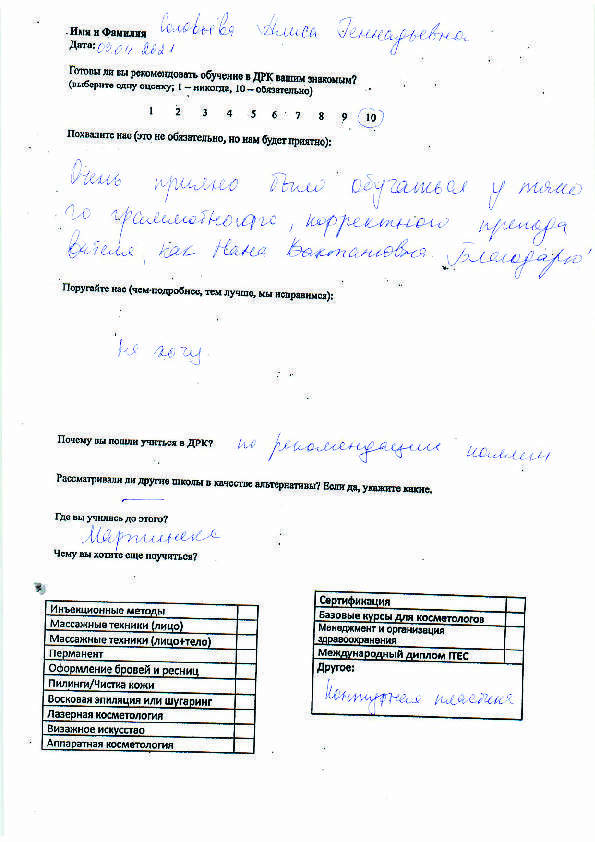 Имя и Фамилия Соловьёва Алиса Геннадьевна
Дата: 09.04 2021
Готовы ли вы рекомендовать обучение в ДРК вашим знакомым?
(выберите одну оценку; 1 – никогда, 10 – обязательно)
1 2 3 4 5 6 7 8 9 10
Похвалите нас (это не обязательно, но нам будет приятно):
Очень приятно было обучаться у тако
го грамотного, корректного препода
вателя, как Нана Вахтанговна. Благодарю!
Поругайте нас (чем подробнее, тем лучше, мы исправимся):
Не хочу.
Почему вы пошли учиться в ДРК? по рекомендации коллег
Рассматривали ли другие школы в качестве альтернативы? Если да, укажите какие.
Где вы учились до этого?
Мартинекс
Чему вы хотите еще поучиться?
Инъекционные методы
Массажные техники (лицо)
Массажные техники (лицо+тело)
Перманент
Оформление бровей и ресниц
Пилинги/Чистка кожи
Восковая эпиляция или шугаринг
Лазерная косметология
Визажное искусство
Аппаратная косметология
Сертификация
Базовые курсы для косметологов
Менеджмент и организация
здравоохранения
Международный диплом ITEC
Другое:
Контурная пластика